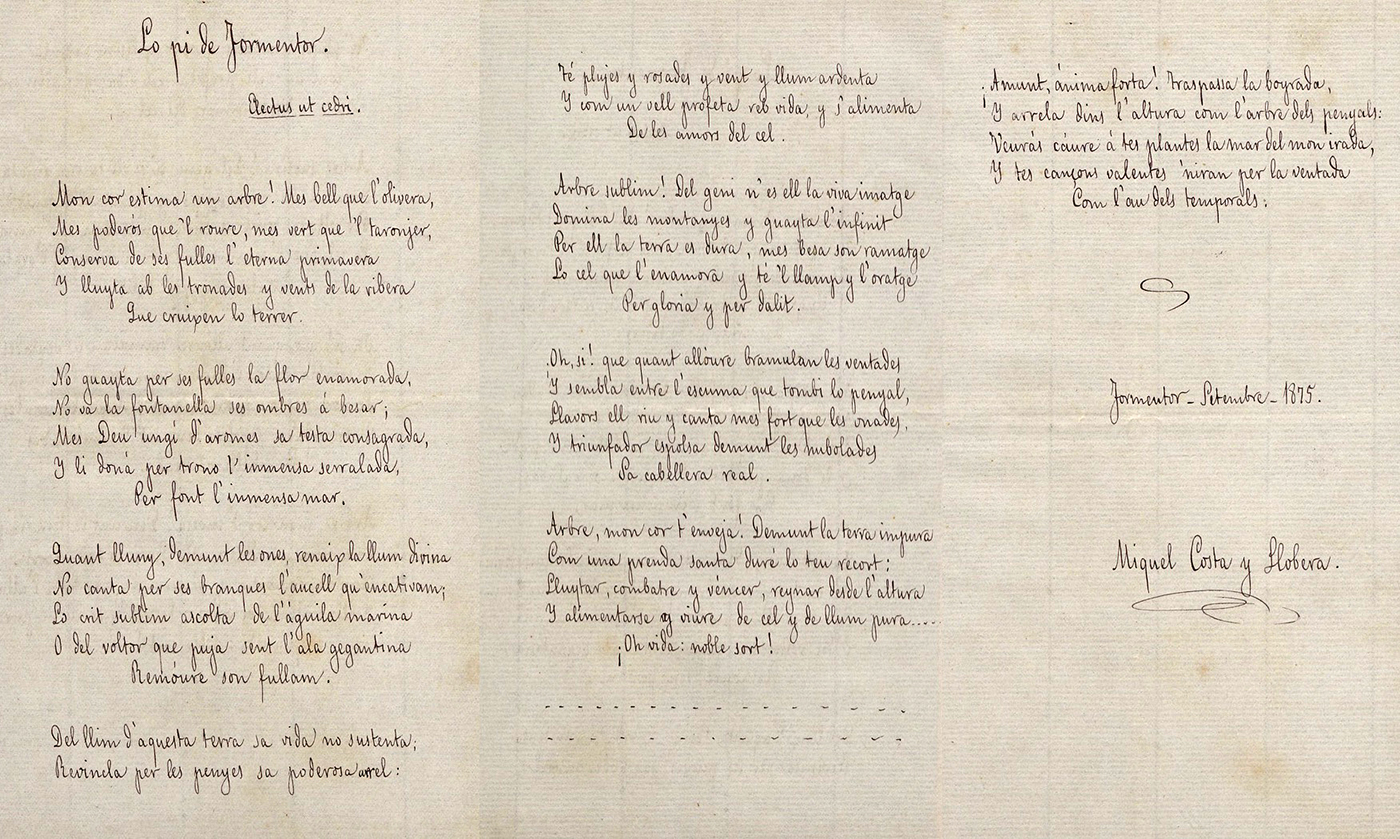 Lo pi de Formentor.
Electus ut cedri.
Mon cor estima un arbre! Mes bell que l'olivera,
Mes poderós que 'l roure, mes vert que 'l taronjer,
Conserva de ses fulles l'eterna primavera
Y lluyta ab les tronades y vents de la ribera
Que cruixen lo terrer.
No guayta per ses fulles la flor enamorada,
No va la fontanella ses ombres á besar;
Mes Deu ungí d'aromes sa testa consagrada,
Y li doná per trono l'inmensa serralada,
Per font l'inmensa mar.
Quant lluny, demunt les ones, renaix la llum divina
No canta per ses branques l'aucell qu'encativam;
Lo crit sublim ascolta de l'águila marina
O del voltor que puja sent l'ala gegantina
Remóure son fullam.
Del llim d'aquesta terra sa vida no sustenta;
Revincla per les penyes sa poderosa arrel:
Té plujes y rosades y vent y llum ardenta
Y com un vell profeta reb vida, y s'alimenta
De les amors del cel.
Arbre sublim! Del geni n'es ell la viva imatge
Domina les montanyes y guayta l'infinit
Per ell la terra es dura, mes besa son ramatge
Lo cel que l'enamora y té 'l llamp y l'oratge
Per gloria y per dalit.
Oh, si! que quant allóure bramulan les ventades
Y sembla entre l'escuma que tombi lo penyal,
Llavors ell riu y canta mes fort que les onades,
Y triunfador espolsa demunt les nubolades
Sa cabellera real.
Arbre, mon cor t'enveja! Demunt la terra impura
Com una prenda santa duré lo teu recort:
Lluytar, combatre y véncer, reynar desde l'altura
Y alimentarse y viure de cel y de llum pura.....
¡Oh vida: noble sort!
¡Amunt, ánima forta! Traspassa la boyrada,
Y arrela dins l'altura com l'arbre dels penyals:
Veurás cáure á tes plantes la mar del mon irada,
Y tes cançons valentes 'niran per la ventada
Com l'au dels temporals:
Formentor - Setembre - 1875.
Miquel Costa y Llobera.